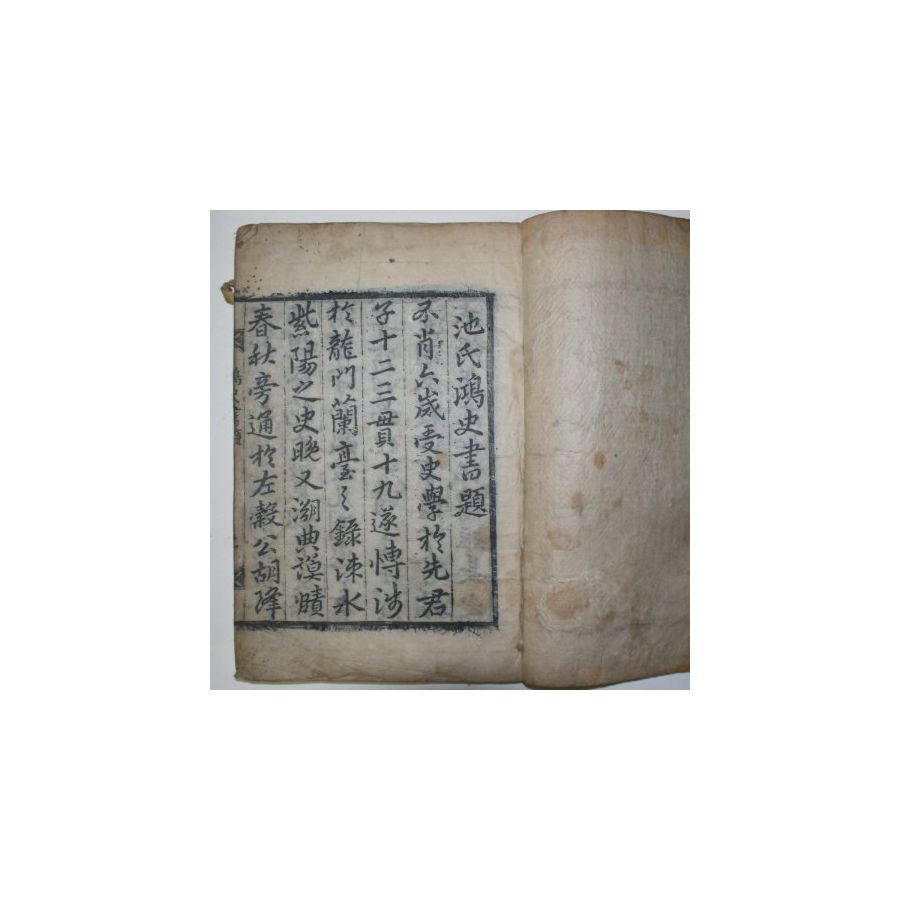 池氏鴻史書題
不肖六歲受史學於先君
子十二三毌貫十九遂愽涉
於龍門蘭臺之錄涑水
紫陽之史晚又溯典謨賾
春秋旁通於左穀公胡